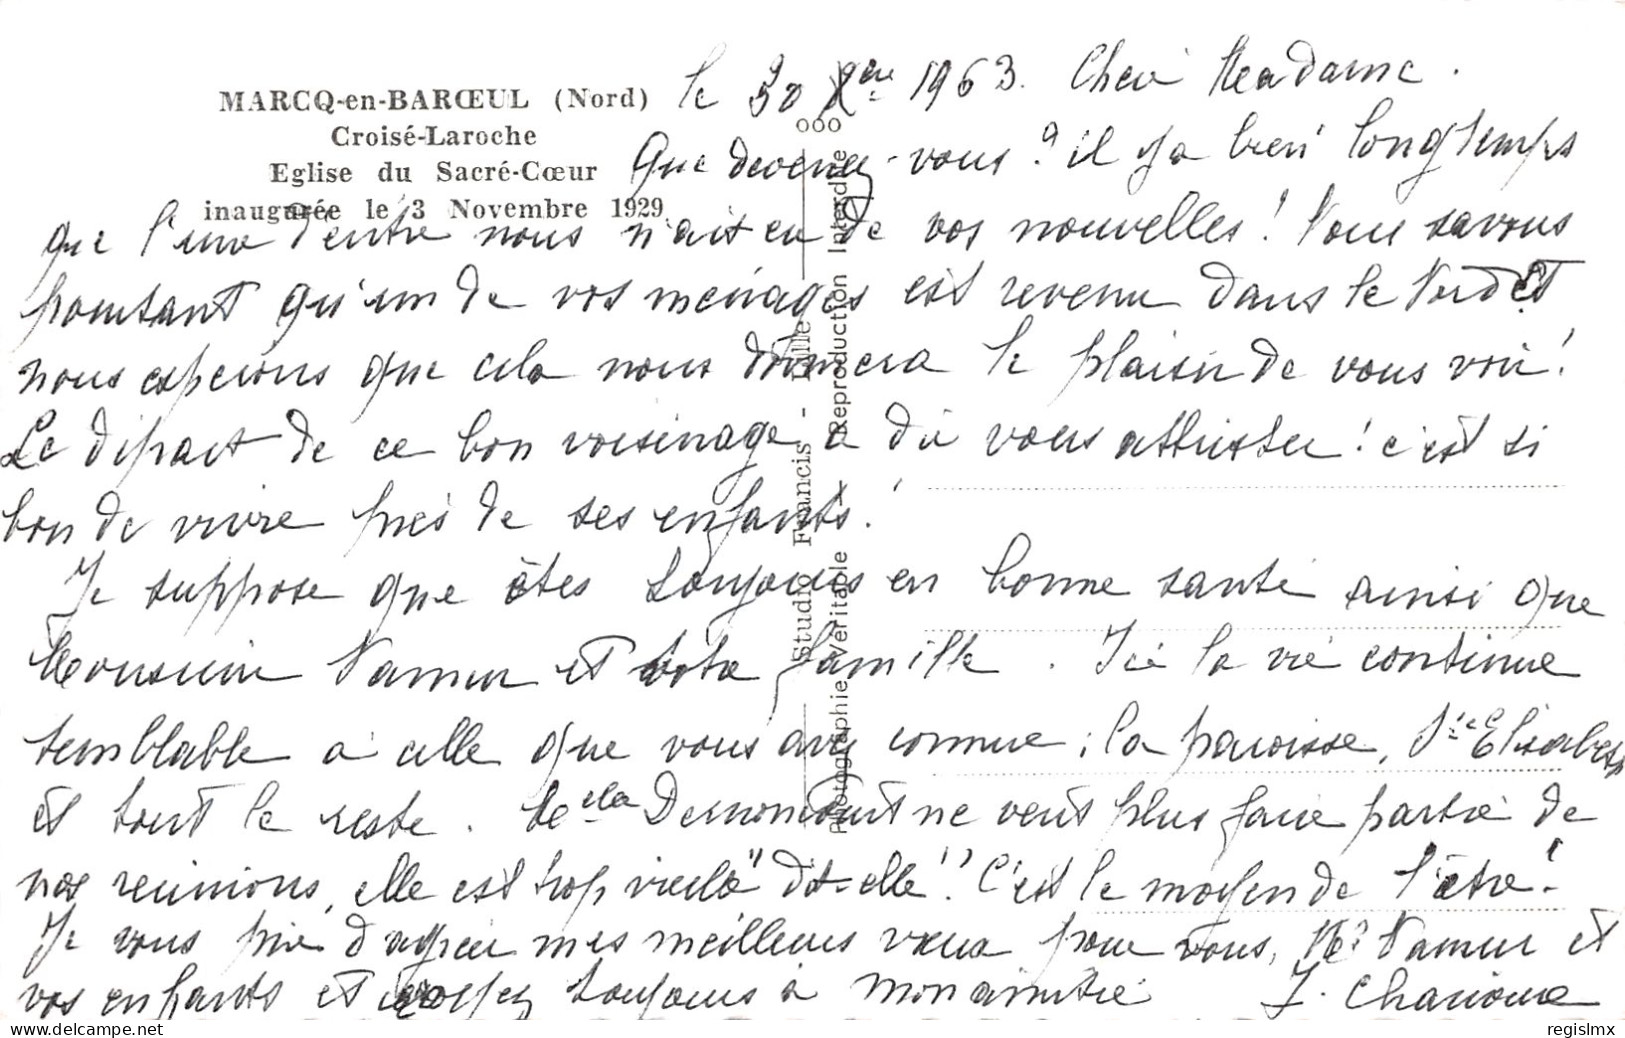 MARCQ-en-BARŒUL (Nord)
Croisé-Laroche
Eglise du Sacré-Cœur
inaugurée le 3 Novembre 1929
le 30 Xbre 1963. Chère Madame.
Que devenez-vous ? il y a bien longtemps
que l'une d'entre nous n'ait eu de vos nouvelles ! Nous savons
pourtant qu'un de vos ménages est revenu dans le Nord et
nous espérons que cela nous donnera le plaisir de vous voir !
Le départ de ce bon voisinage a dû vous attrister ! c'est si
bon de vivre près de ses enfants !
Je suppose que êtes toujours en bonne santé ainsi que
Monsieur Namur et votre famille. Ici la vie continue
semblable à celle que vous avez connue ; la paroisse, Ste Elisabeth
et tout le reste. Melle ne veut plus faire partie de
nos réunions, elle est trop vieille" dit-elle ! C'est le moyen de l'être !
Je vous prie d'agréer mes meilleurs vœux pour vous, Mr Namur et
vos enfants et croyez toujours à mon amitié J.
ooo
Studio Francis - Lille
Photographie Véritable - Reproduction Interdite
regislmx